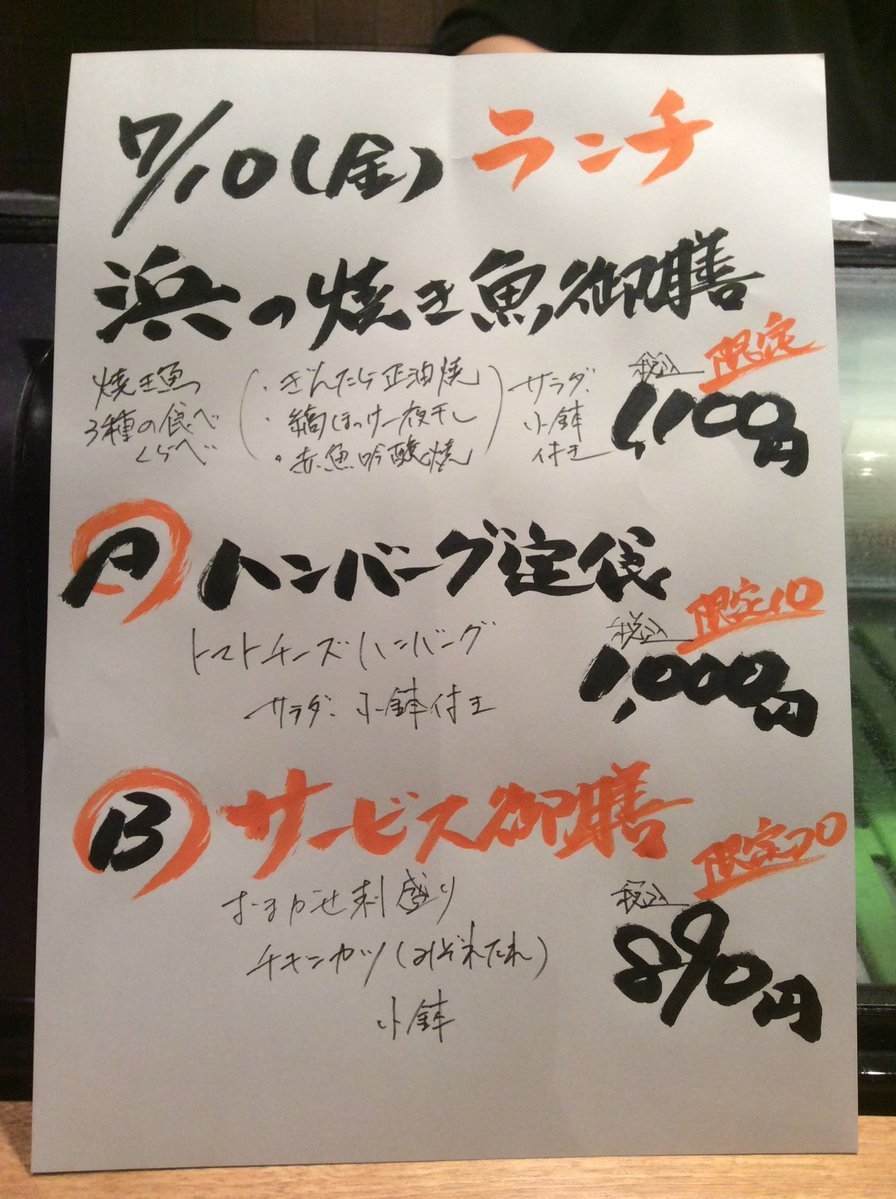 7/10(金) ランチ
浜の焼き魚御膳
焼き魚
3種の食べ
くらべ
・ぎんたら正油焼
・縞ほっけ一夜干し
・赤魚吟醸焼
サラダ・
小鉢
付き
税込 限定
1,100円
A ハンバーグ定食
トマトチーズハンバーグ
サラダ・小鉢付き
税込 限定10
1,000円
B サービス御膳
おまかせ刺盛り
チキンカツ(みぞれたれ)
小鉢
税込 限定20
890円